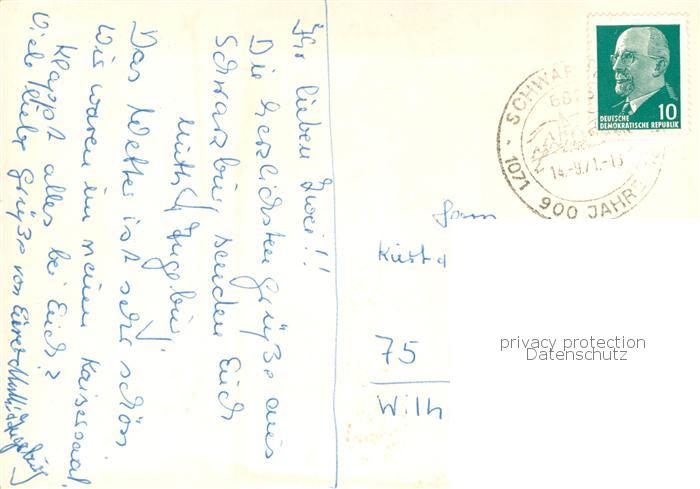 Ihr lieben Zwei!!
Die herzlichsten Grüße aus
Schwarzburg senden Euch
Mutti u. Ingeburg.
Das Wetter ist sehr schön
Wir waren im neuen Kaisersaal
Klappt alles bei Euch?
Viele liebe Grüße von Eurer Mutti u. Ingeburg
SCHWAR
1071 900 JAHRE
14.-9.71.-13
DEUTSCHE
DEMOKRATISCHE REPUBLIK
10
Fam
Kurt
75
Wilh
privacy protection
Datenschutz